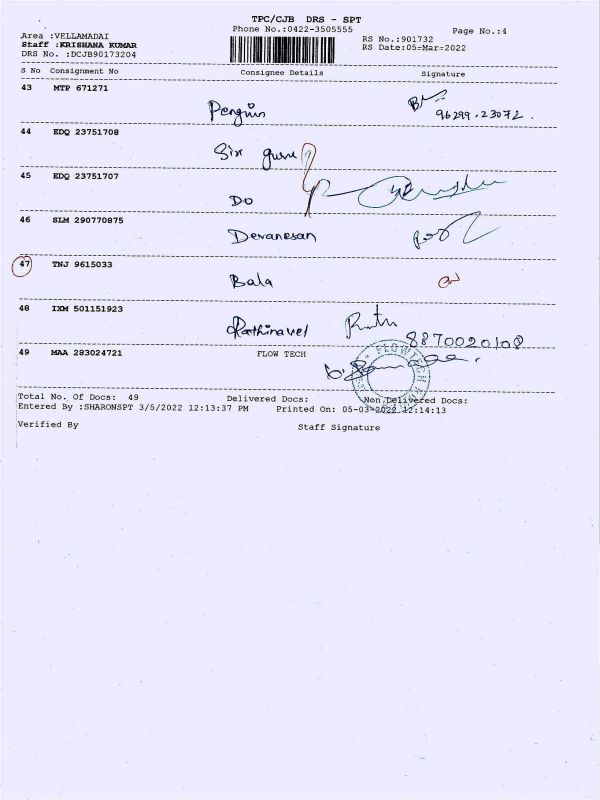 TPC/CJB DRS - SPT
Phone No.:0422-3505555
Page No.:4
Area :VELLAMADAI
RS No.:901732
Staff :KRISHANA KUMAR
RS Date:05-Mar-2022
DRS No. :DCJB90173204
S No Consignment No Consignee Details Signature
43 MTP 671271
Penguin
96299.23072.
44 EDQ 23751708
Siri guru
45 EDQ 23751707
DO
46 SLM 290770875
Devanesan
47 TNJ 9615033
Bala
48 IXM 501151923
Rathinavel
8870020108
49 MAA 283024721 FLOW TECH
FLOWTECH
Total No. Of Docs: 49 Delivered Docs: Non Delivered Docs:
Entered By :SHARONSPT 3/5/2022 12:13:37 PM Printed On: 05-03-2022 12:14:13
Verified By Staff Signature